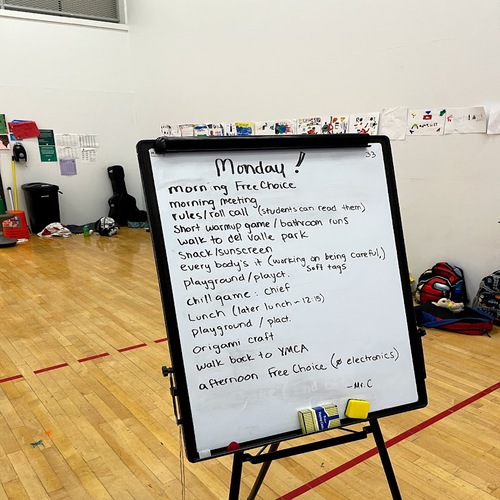 Monday!
33
morning Free Choice
morning meeting
rules/roll call (students can read them)
Short warmup game / bathroom runs
walk to del valle park
snack/sunscreen
every body's it (working on being careful,)
soft tags
playground/playct.
chill game: chief
Lunch (later lunch - 12:15)
playground / plact.
origami craft
walk back to YMCA
afternoon Free Choice (ø electronics)
-Mr.C